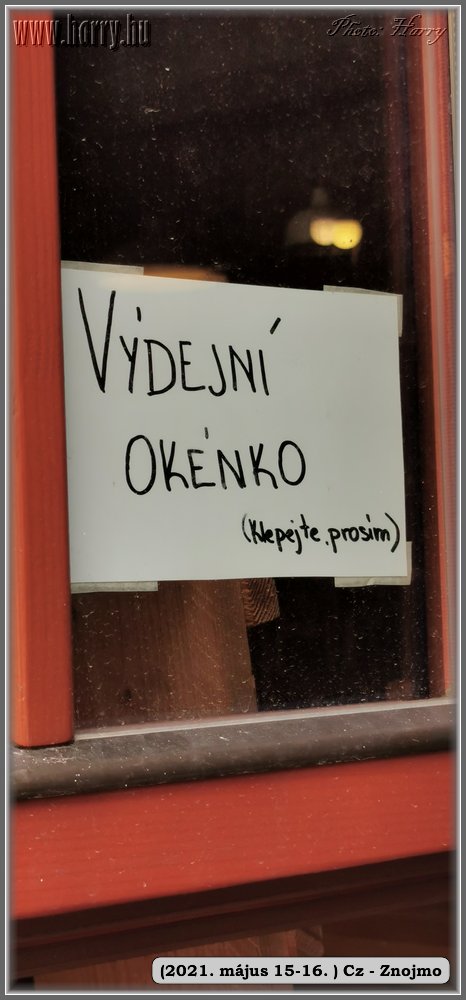 www.horry.hu Photo: Horry
VÝDEJNÍ
OKÉNKO
(Klepejte prosím)
(2021. május 15-16. ) Cz - Znojmo